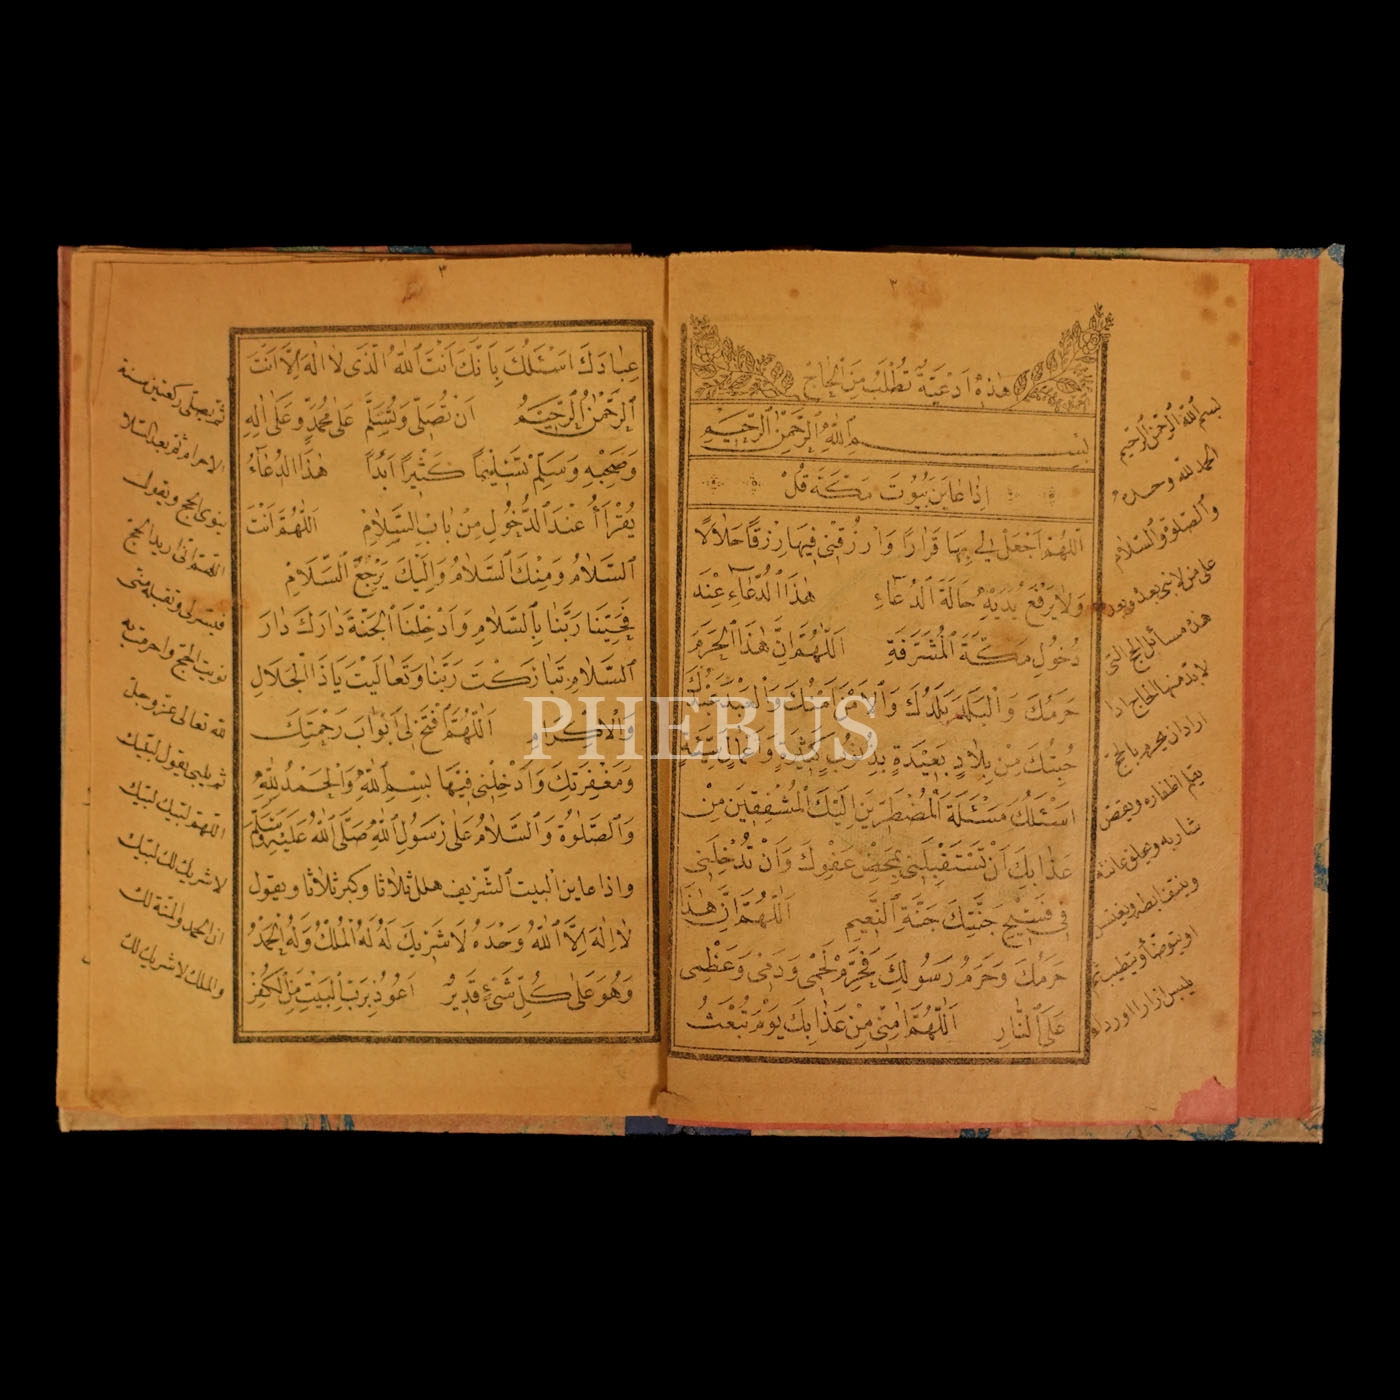 ٢
هٰذِهْ اَدْعِيَةٌ تُطْلَبُ مِنَ الْحَاجِّ
بِسْمِ اللّٰهِ الرَّحْمٰنِ الرَّحِيْمِ
اِذَا عَايَنَ بُيُوتَ مَكَّةَ قُلْ
اَللّٰهُمَّ اجْعَلْ لِي بِهَا قَرَارًا وَارْزُقْنِي فِيهَا رِزْقًا حَلَالًا
وَلَا يَرْفَعُ يَدَيْهِ حَالَةَ الدُّعَاءِ هٰذَا الدُّعَاءِ عِنْدَ
دُخُولِ مَكَّةَ الْمُشَرَّفَةِ اَللّٰهُمَّ اِنَّ هٰذَا الْحَرَمَ
حَرَمُكَ وَالْبَلَدَ بَلَدُكَ وَالْاَمْنَ اَمْنُكَ وَالْعَبْدَ عَبْدُكَ
جِئْتُكَ مِنْ بِلَادٍ بَعِيْدَةٍ بِذُنُوبٍ كَثِيْرَةٍ وَاَعْمَالٍ سَيِّئَةٍ
اَسْئَلُكَ مَسْئَلَةَ الْمُضْطَرِّيْنَ اِلَيْكَ الْمُشْفِقِيْنَ مِنْ
عَذَابِكَ اَنْ تَسْتَقْبِلَنِي بِمَحْضِ عَفْوِكَ وَاَنْ تُدْخِلَنِي
فِي فَسِيْحِ جَنَّتِكَ جَنَّةِ النَّعِيمِ اَللّٰهُمَّ اِنَّ هٰذَا
حَرَمُكَ وَحَرَمُ رَسُولِكَ فَحَرِّمْ لَحْمِي وَدَمِي وَعَظْمِي
عَلَى النَّارِ اَللّٰهُمَّ اٰمِنِّي مِنْ عَذَابِكَ يَوْمَ تَبْعَثُ
بسم اللّٰه الرّحمن الرّحيم
الحمد للّٰه وحده
والصّلوة والسّلام
على من لا نبي بعده وبعد
هذه مسائل الحج التى
لابدّ منها للحاج اذا
اراد ان يحرم بالحجّ
يقلم اظفاره ويقصّ
شاربه ويحلق عانته
وينتف ابطه ويغتسل
او يتوضّأ ويتطيب ثم
يلبس ازارا ورداء
٣
عِبَادَكَ اَسْئَلُكَ بِاَنَّكَ اَنْتَ اللّٰهُ الَّذِى لَا اِلٰهَ اِلَّا اَنْتَ
الرَّحْمٰنُ الرَّحِيْمُ اَنْ تُصَلِّىَ وَتُسَلِّمَ عَلٰى مُحَمَّدٍ وَعَلٰى اٰلِهِ
وَصَحْبِهِ وَسَلِّمْ تَسْلِيْمًا كَثِيْرًا اَبَدًا هٰذَا الدُّعَاءُ
يُقْرَأُ عِنْدَ الدُّخُولِ مِنْ بَابِ السَّلَامِ اَللّٰهُمَّ اَنْتَ
السَّلَامُ وَمِنْكَ السَّلَامُ وَاِلَيْكَ يَرْجِعُ السَّلَامُ
فَحَيِّنَا رَبَّنَا بِالسَّلَامِ وَاَدْخِلْنَا الْجَنَّةَ دَارَكَ دَارَ
السَّلَامِ تَبَارَكْتَ رَبَّنَا وَتَعَالَيْتَ يَا ذَا الْجَلَالِ
وَالْاِكْرَامِ اَللّٰهُمَّ افْتَحْ لِى اَبْوَابَ رَحْمَتِكَ
وَمَغْفِرَتِكَ وَاَدْخِلْنِى فِيْهَا بِسْمِ اللّٰهِ وَالْحَمْدُ لِلّٰهِ
وَالصَّلٰوةُ وَالسَّلَامُ عَلٰى رَسُولِ اللّٰهِ صَلَّى اللّٰهُ عَلَيْهِ وَسَلَّمَ
واذا عاين البيت الشّريف هلل ثلاثا وكبر ثلاثا ويقول
لَا اِلٰهَ اِلَّا اللّٰهُ وَحْدَهُ لَا شَرِيكَ لَهُ لَهُ الْمُلْكُ وَلَهُ الْحَمْدُ
وَهُوَ عَلٰى كُلِّ شَىْءٍ قَدِيْرٌ اَعُوذُ بِرَبِّ الْبَيْتِ مِنَ الْكُفْرِ
ثمّ يصلّى ركعتين سنة
الاحرام ثم بعد السّلام
ينوى الحج ويقول
اللهمّ انى اريد الحج
فيسره لى وتقبله منى
نويت الحج واحرمت به
للّٰه تعالى عزّ وجلّ
ثم يلبى يقول لبّيك
اللّهمّ لبّيك لبّيك
لا شريك لك لبّيك
ان الحمد والنعمة لك
والملك لا شريك لك
PHEBUS